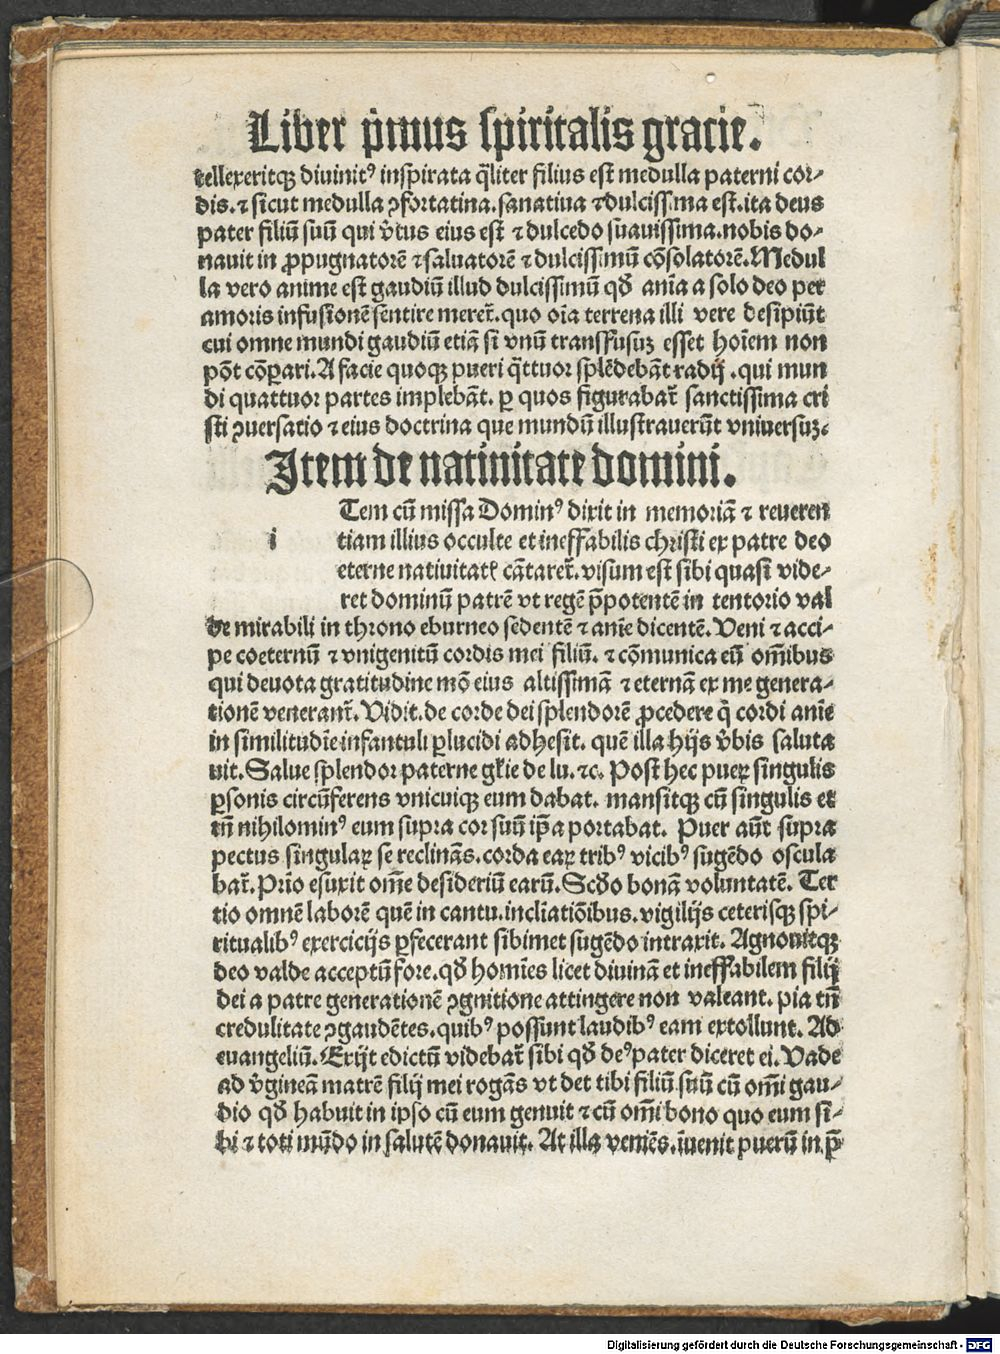 Liber p̄imus spiritalis gracie.
tellexeritqꝫ diuinitꝰ inspirata q̄liter filius est medulla paterni cor⸗
dis. ⁊ sicut medulla ꝯfortatina. sanatiua ⁊ dulcissima est. ita deus
pater filiū suū qui v̄tus eius est ⁊ dulcedo suauissima. nobis do⸗
nauit in ꝓpugnatorē ⁊ saluatorē ⁊ dulcissimū cōsolatorē. Medul
la vero anime est gaudiū illud dulcissimū qđ aīa a solo deo per
amoris infusionē sentire meret̄. quo oīa terrena illi vere desipiūt
cui omne mundi gaudiū etiā si vnū transfusuꝫ esset hoīem non
pōt cōꝑari. A facie quoqꝫ pueri q̄ttuor splēdebāt radij. qui mun
di quattuor partes implebāt. ꝑ quos figurabat̄ sanctissima cri
sti ꝯuersatio ⁊ eius doctrina que mundū illustrauerūt vniuersuꝫ.
Item de natiuitate domini.
Tem cū missa Dominꝰ dixit in memoriā ⁊ reueren
i tiam illius occulte et ineffabilis christi ex patre deo
eterne natiuitatꝭ cātaret̄. visum est sibi quasi vide⸗
ret dominū patrē vt regē p̄potentē in tentorio val
de mirabili in throno eburneo sedentē ⁊ anīe dicentē. Veni ⁊ acci⸗
pe coeternū ⁊ vnigenitū cordis mei filiū. ⁊ cōmunica eū om̄ibus
qui deuota gratitudine mō eius altissimā ⁊ eternā ex me genera⸗
tionē venerant̄. Vidit. de corde dei splendorē ꝓcedere q̄ cordi anīe
in similitudīe infantuli ꝑlucidi adhesit. quē illa hijs v̄bis saluta
uit. Salue splendor paterne gl̄ie de lu. ⁊c. Post hec puer singulis
ꝑsonis circūferens vnicuiqꝫ eum dabat. mansitqꝫ cū singulis et
tn̄ nihilominꝰ eum supra cor suū ip̄a portabat. Puer aūt supra
pectus singulaꝝ se reclinās. corda eaꝝ tribꝰ vicibꝰ sugēdo oscula
bat̄. Prīo esuxit om̄e desideriū earū. Scđo bonā voluntatē. Ter
tio omnē laborē quē in cantu. incliatiōibus. vigilijs ceterisqꝫ spi⸗
ritualibꝰ exercicijs ꝑfecerant sibimet sugēdo intraxit. Agnouitqꝫ
deo valde acceptū fore. qđ homīes licet diuinā et ineffabilem filij
dei a patre generationē ꝯgnitione attingere non valeant. pia tn̄
credulitate ꝯgaudētes. quibꝰ possunt laudibꝰ eam extollunt. Ad
euangeliū. Exijt edictū videbat̄ sibi qđ deꝰ pater diceret ei. Vade
ad v̄gineā matrē filij mei rogās vt det tibi filiū suū cū om̄i gau⸗
dio qđ habuit in ipso cū eum genuit ⁊ cū om̄i bono quo eum si⸗
bi ⁊ toti mūdo in salutē donauit. At illa veniēs. īuenit puerū in p̄
Digitalisierung gefördert durch die Deutsche Forschungsgemeinschaft - DFG